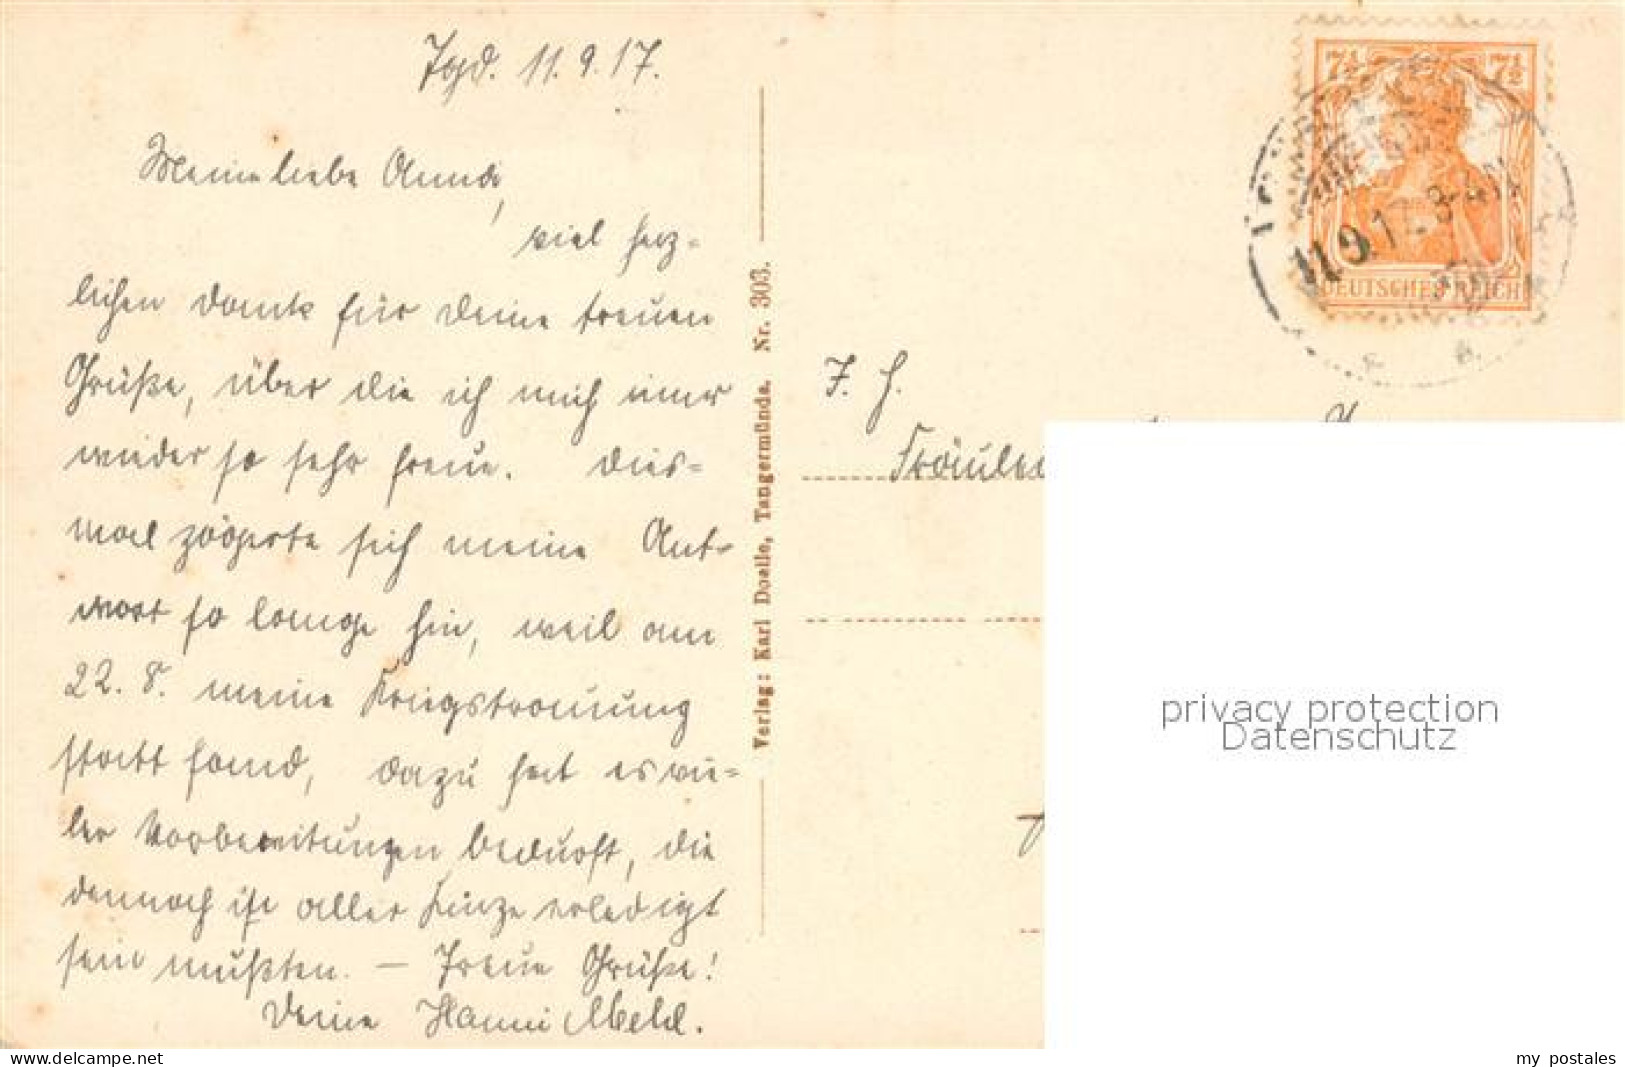 Tgd. 11.9.17.
Meine liebe Anna,
viel herz-
lichen Dank für Deine treuen
Grüße, über die ich mich imer
wieder so sehr freue. Dies-
mal zögerte sich meine Ant-
wort so lange hin, weil am
22.8. meine Kriegstrauung
statt fand, dazu hat es vie-
ler Vorbereitungen bedurft, die
dennoch in aller Kürze erledigt
sein mußten. – Treue Grüße!
Deine Hanni
Verlag: Karl Doelle, Tangermünde. Nr. 303.
7½ 7½
DEUTSCHES REICH
11.9.17. 3-4N
F. H.
privacy protection
Datenschutz
www.delcampe.net
my postales